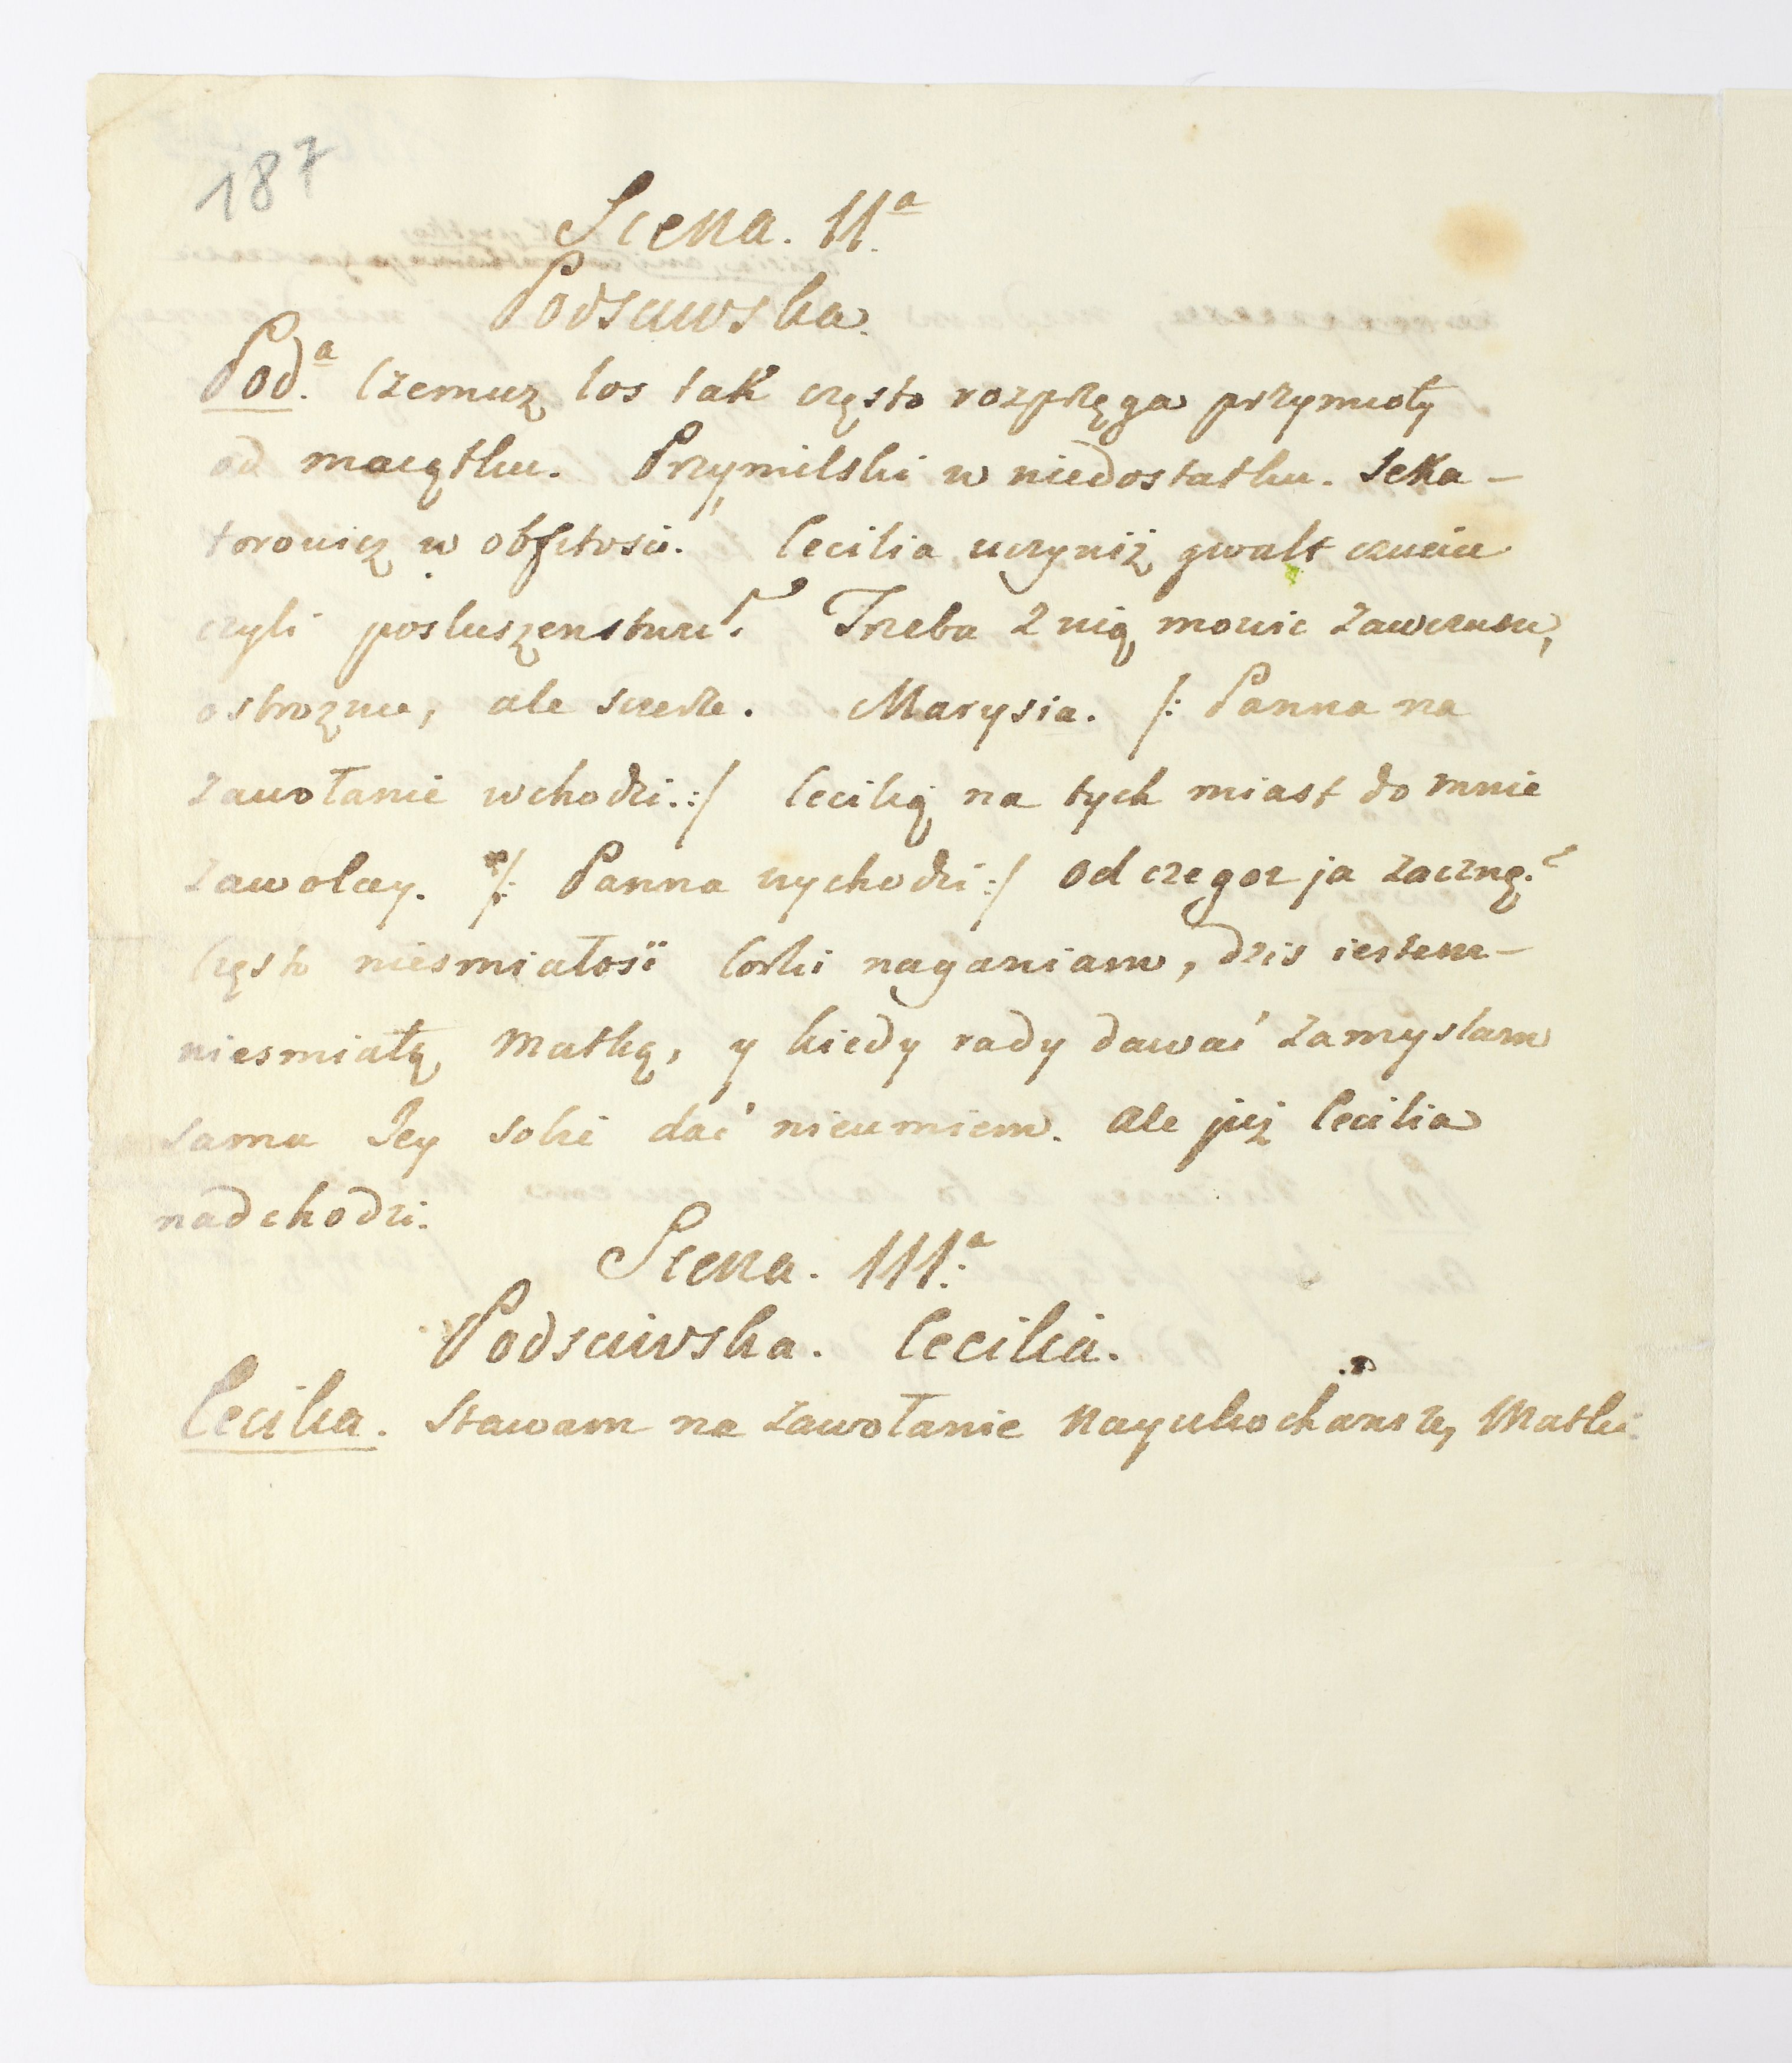 187
Scena. IIª
Podsciwska.
Pod.ª Czemuz los tak często rozprzęga przymioty
od maiątku. Przymilski w niedostatku. Seka-
torowicz w obfitosci. Cecilia uczyniż gwalt czuciu
czyli posluszenstwu? Trzeba z nią mowic zawczasu,
ostroznie, ale szczerze. Marysia. /: Panna na
zawołanie wchodzi. :/ Cecilią na tych miast do mnie
zawolay. /: Panna wychodzi :/ Od czegoz ja zaczną?
Często niesmiałosć Corki naganiam, dzis iestem-
niesmiałą Matką, y kiedy rady dawać zamyslam
sama Jey sobie dać nieumiem. Ale już Cecilia
nadchodzi.
Scena. IIIª
Podsciwska. Cecilia.
Cecilia. Stawam na zawołanie Nayukochanszey Matki.